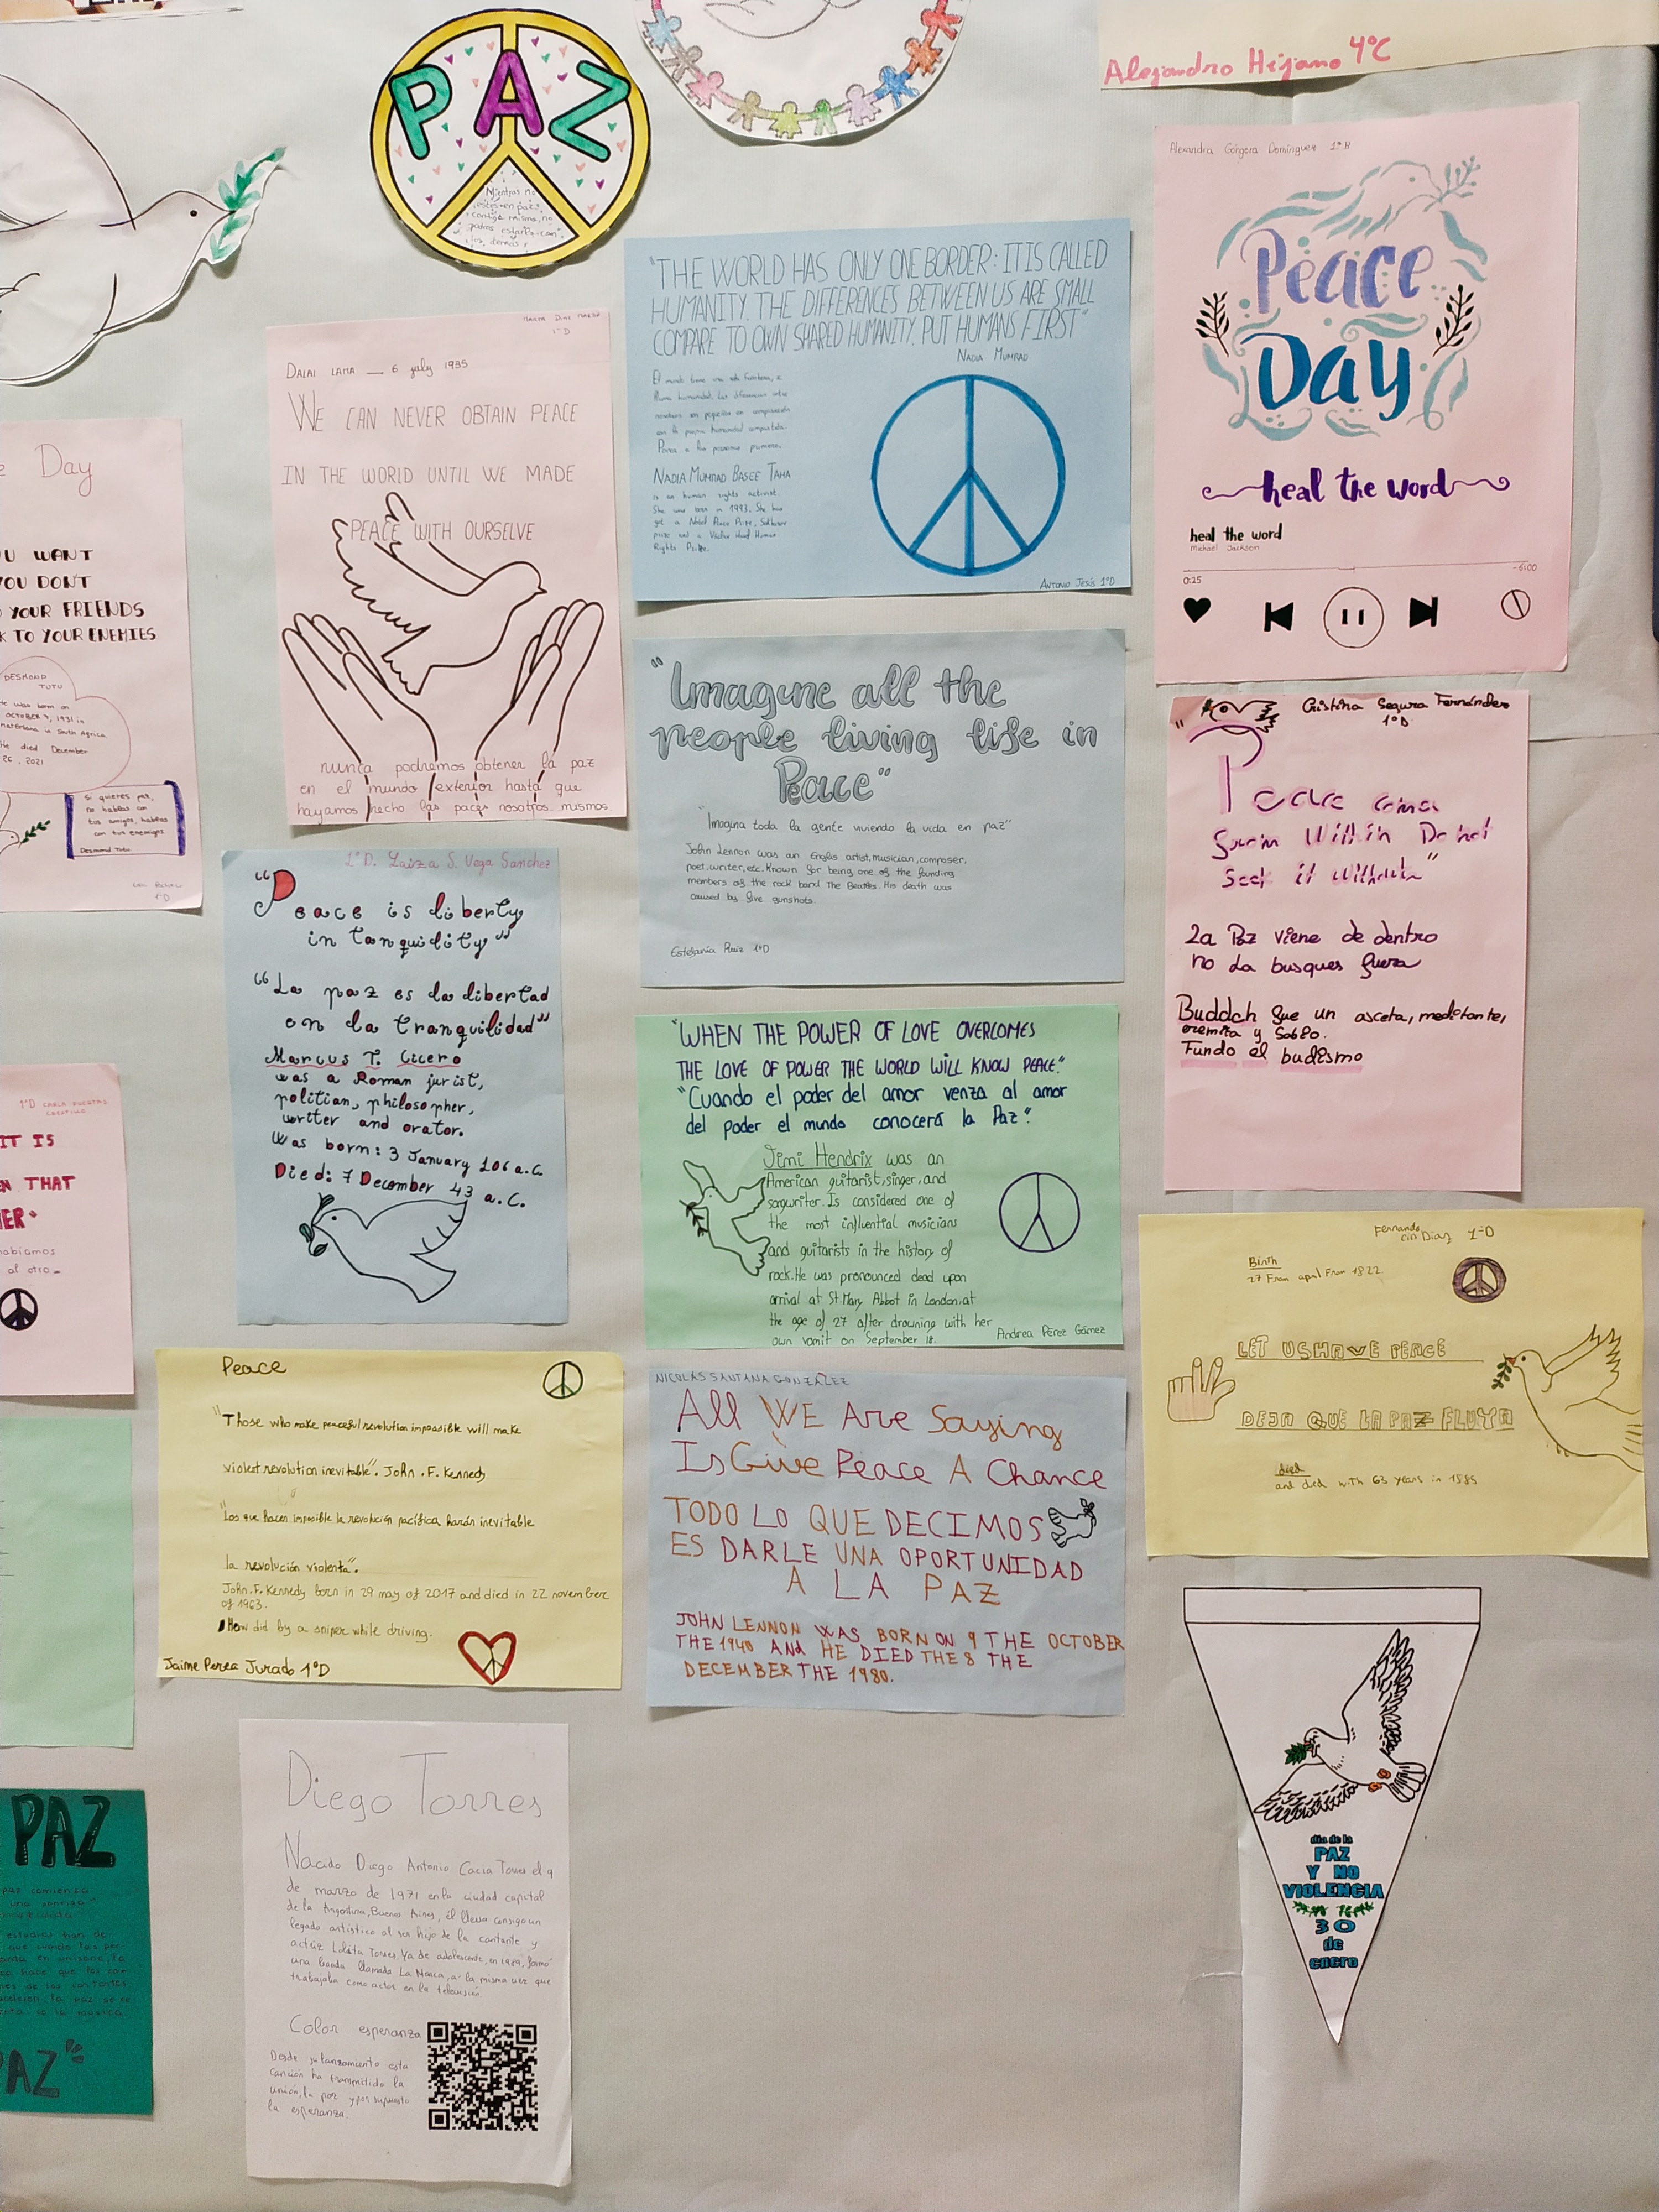 PAZ
Mientras no
estés en paz
contigo mismo, no
podrás estarlo con
los demás
Alejandro Hijano 4ºC
Alexandra Góngora Domínguez 1ºB
Peace
Day
heal the word
heal the word
Michael Jackson
0:25
-6:00
"THE WORLD HAS ONLY ONE BORDER: IT IS CALLED
HUMANITY. THE DIFFERENCES BETWEEN US ARE SMALL
COMPARE TO OWN SHARED HUMANITY. PUT HUMANS FIRST"
NADIA MUMRAD
El mundo tiene una sola frontera, se
llama humanidad. Las diferencias entre
nosotros son pequeñas en comparación
con la propia humanidad compartida.
NADIA MUMRAD BASEE TAHA
is an human rights activist.
She was born in 1993. She has
got a Nobel Peace Prize, Sakharov
prize and a Václav Havel Human
Rights Prize.
ANTONIO JESÚS 1ºD
1ºD
DALAI LAMA — 6 july 1935
WE CAN NEVER OBTAIN PEACE
IN THE WORLD UNTIL WE MADE
PEACE WITH OURSELVE
nunca podremos obtener la paz
en el mundo exterior hasta que
hayamos hecho las paces nosotros mismos.
e Day
U WANT
YOU DON'T
O YOUR FRIENDS
K TO YOUR ENEMIES
DESMOND
TUTU
He was born on
OCTOBER 7, 1931 in
South Africa
He died December
26, 2021
Si quieres paz,
no hables con
tus amigos, hables
con tus enemigos
Desmond Tutu
1ºD
"Imagine all the
people living life in
Peace"
"Imagina toda la gente viviendo la vida en paz"
John Lennon was an Englis artist, musician, composer,
poet, writer, etc. Known for being one of the founding
members of the rock band The Beatles. His death was
caused by five gunshots.
Estefanía Ruiz 1ºD
Cristina Segura Fernández
1ºD
"Peace come
from Within Do not
Seek it without"
La Paz viene de dentro
no la busques fuera
Buddah fue un asceta, meditante,
eremita y Sabio.
Fundo el budismo
1ºD. Laiza S. Vega Sanchez
"Peace is liberty
in tanquility"
"La paz es la libertad
en la tranquilidad"
Marcus T. Cicero
was a Roman jurist,
politian, philosopher,
writter and orator.
Was born: 3 January 106 a.C.
Died: 7 December 43 a.C.
"WHEN THE POWER OF LOVE OVERCOMES
THE LOVE OF POWER THE WORLD WILL KNOW PEACE."
"Cuando el poder del amor venza al amor
del poder el mundo conocerá la Paz".
Jimi Hendrix was an
American guitarist, singer, and
songwriter. Is considered one of
the most influential musicians
and guitarists in the history of
rock. He was pronounced dead upon
arrival at St Mary Abbot in London, at
the age of 27 after drowning with her
own vomit on September 18.
Andrea Pérez Gómez
1ºD
IT IS
EN THAT
HER"
habíamos
al otro
Fernando
Díaz 1ºD
Birth
27 From april From 1822
LET US HAVE PEACE
DEJA QUE LA PAZ FLUYA
died
and died with 63 years in 1885
Peace
"Those who make peaceful revolution impossible will make
violent revolution inevitable". John .F. Kennedy
"Los que hacen imposible la revolución pacífica harán inevitable
la revolución violenta".
John .F. Kennedy born in 29 may of 2017 and died in 22 november
of 1963.
did by a sniper while driving.
Jaime Perea Jurado 1ºD
NICOLÁS SANTANA GONZÁLEZ
All WE Are Saying
Is Give Peace A Chance
TODO LO QUE DECIMOS
ES DARLE UNA OPORTUNIDAD
A LA PAZ
JOHN LENNON WAS BORN ON 9 THE OCTOBER
THE 1940 AND HE DIED THE 8 THE
DECEMBER THE 1980.
Diego Torres
Nacido Diego Antonio Caccia Torres el 9
de marzo de 1971 en la ciudad capital
de la Argentina, Buenos Aires, él lleva consigo un
legado artístico al ser hijo de la cantante y
actriz Lolita Torres. Ya de adolescente, en 1989, formó
una banda llamada La Marca, a la misma vez que
trabajaba como actor en la televisión.
Color esperanza
Desde su lanzamiento esta
canción ha transmitido la
unión, la paz y por supuesto
la esperanza.
PAZ
paz comienza
una sonrisa"
PAZ"
día de la
PAZ
Y NO
VIOLENCIA
30
de
enero